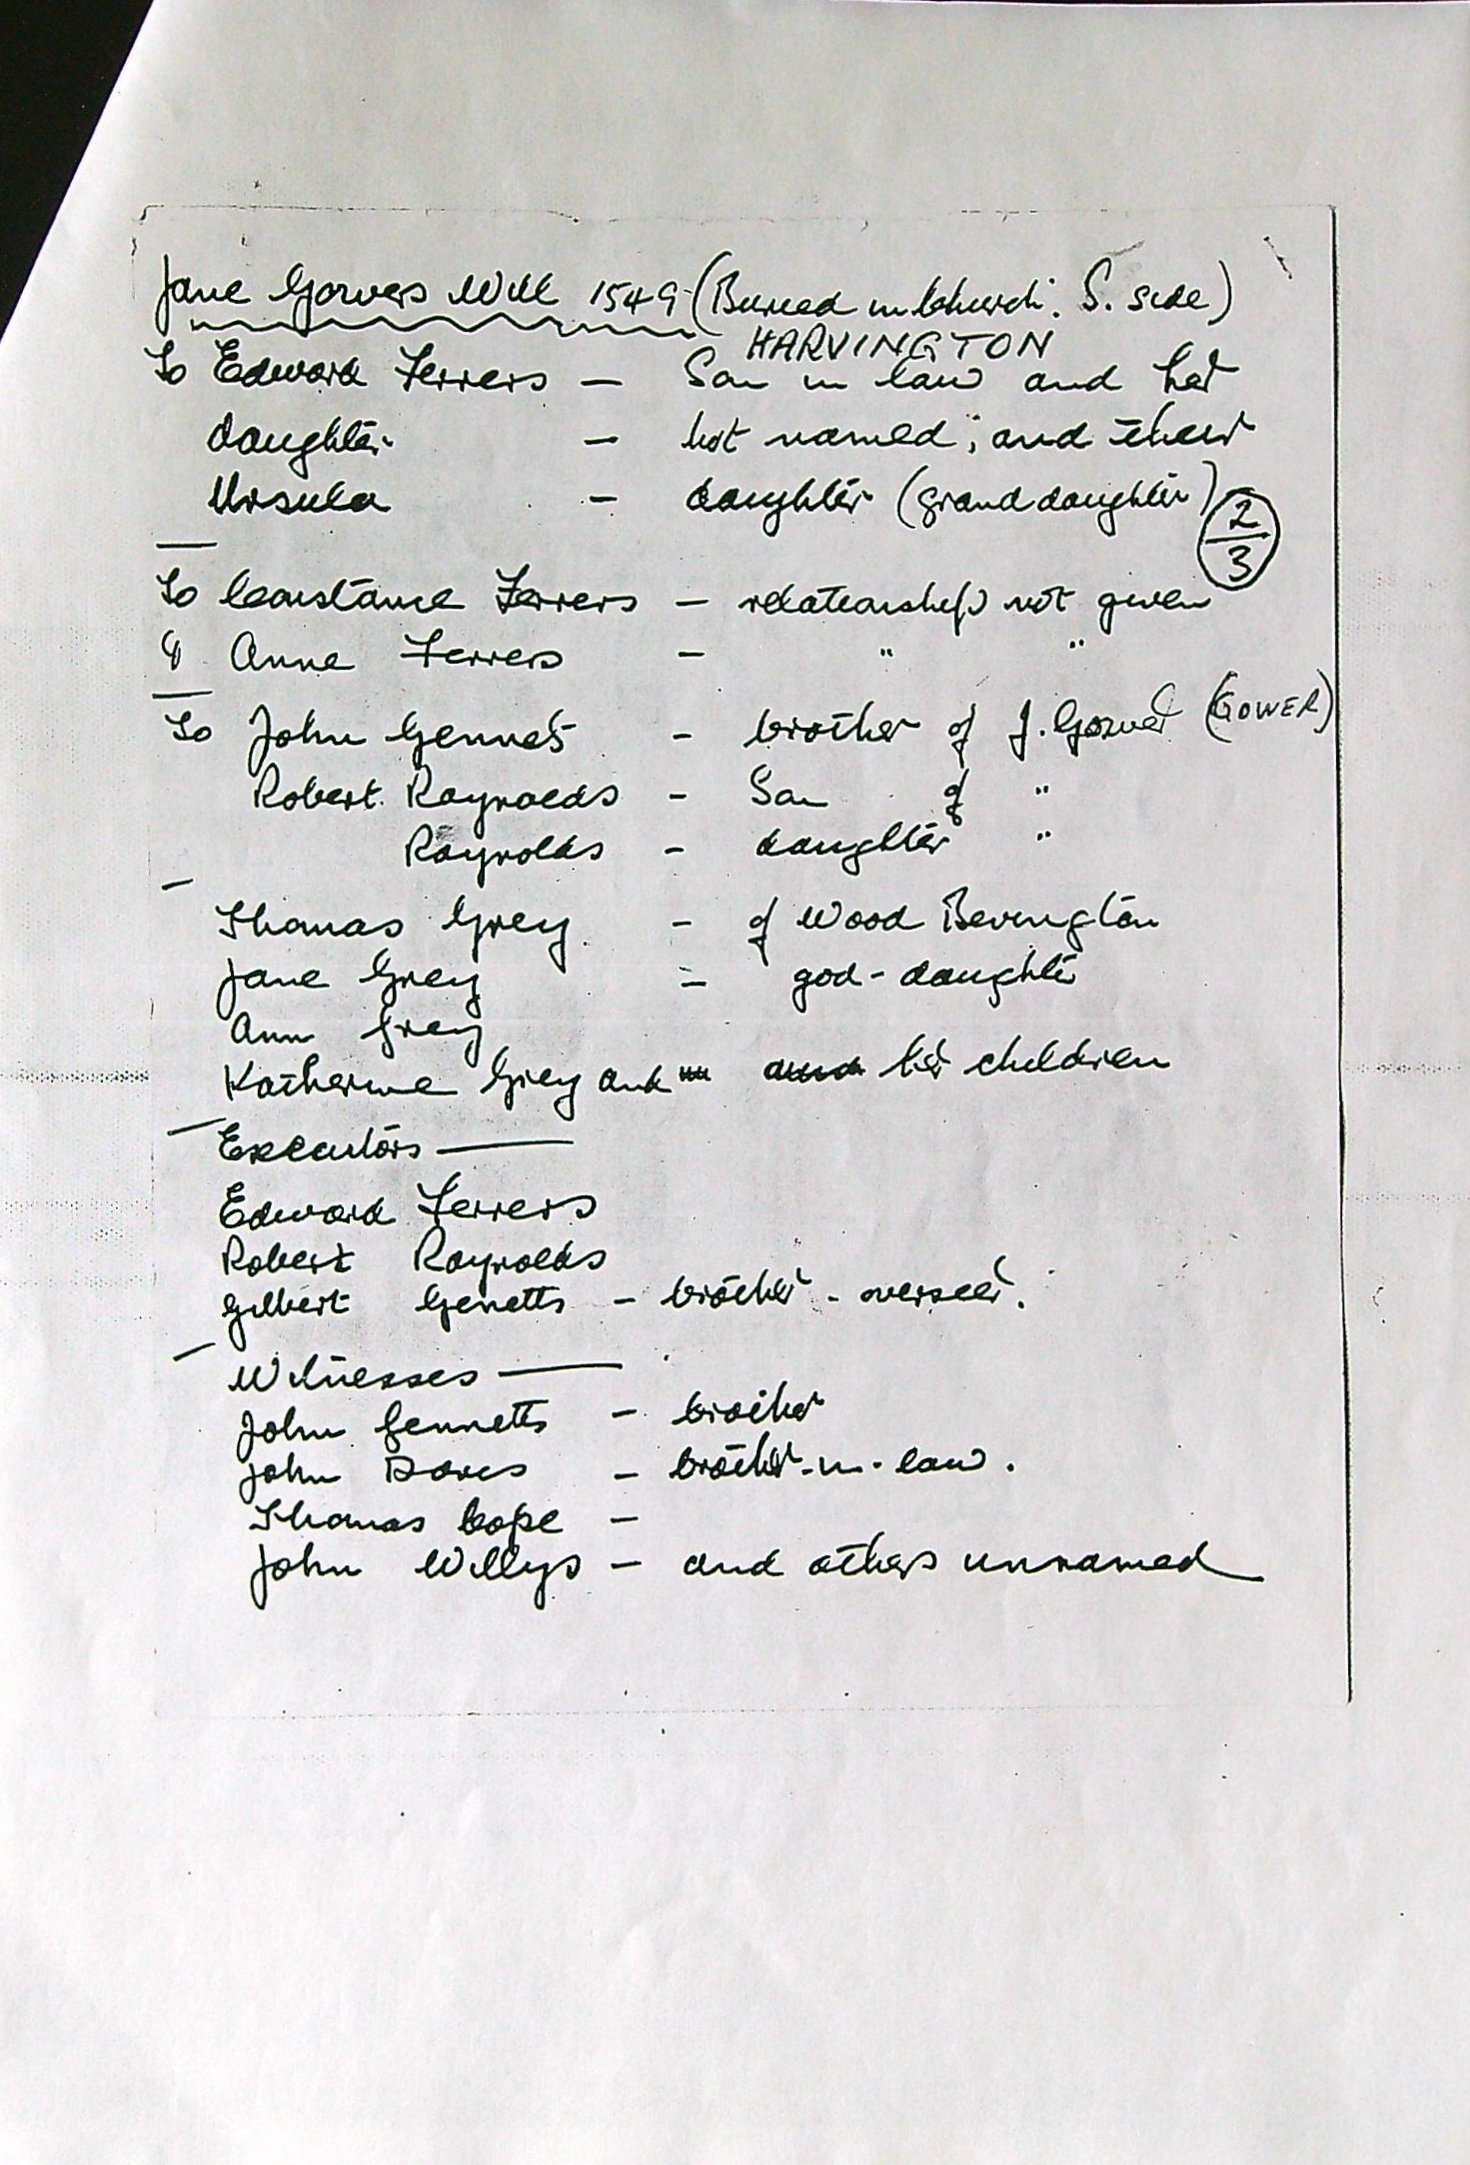 Jane Gowers Will 1549 (Buried in Church. S. side)
HARVINGTON
To Edward Ferrers - Son in law and her
daughter - not named; and their
Ursula - daughter (Grand daughter)
2/3
To Constance Ferrers - relationship not given
" Anne Ferrers - " "
To John Gennets - brother of J. Gower (GOWER)
Robert Raynolds - Son of "
Raynolds - daughter "
Thomas Grey - of Wood Bevington
Jane Grey - god-daughter
Ann Grey
Katherine Grey and her children
Executors
Edward Ferrers
Robert Raynolds
Gilbert Genetts - brother - overseer.
Witnesses
John Gennetts - brother
John - brother-in-law.
Thomas Cope -
John Willys - and others unnamed